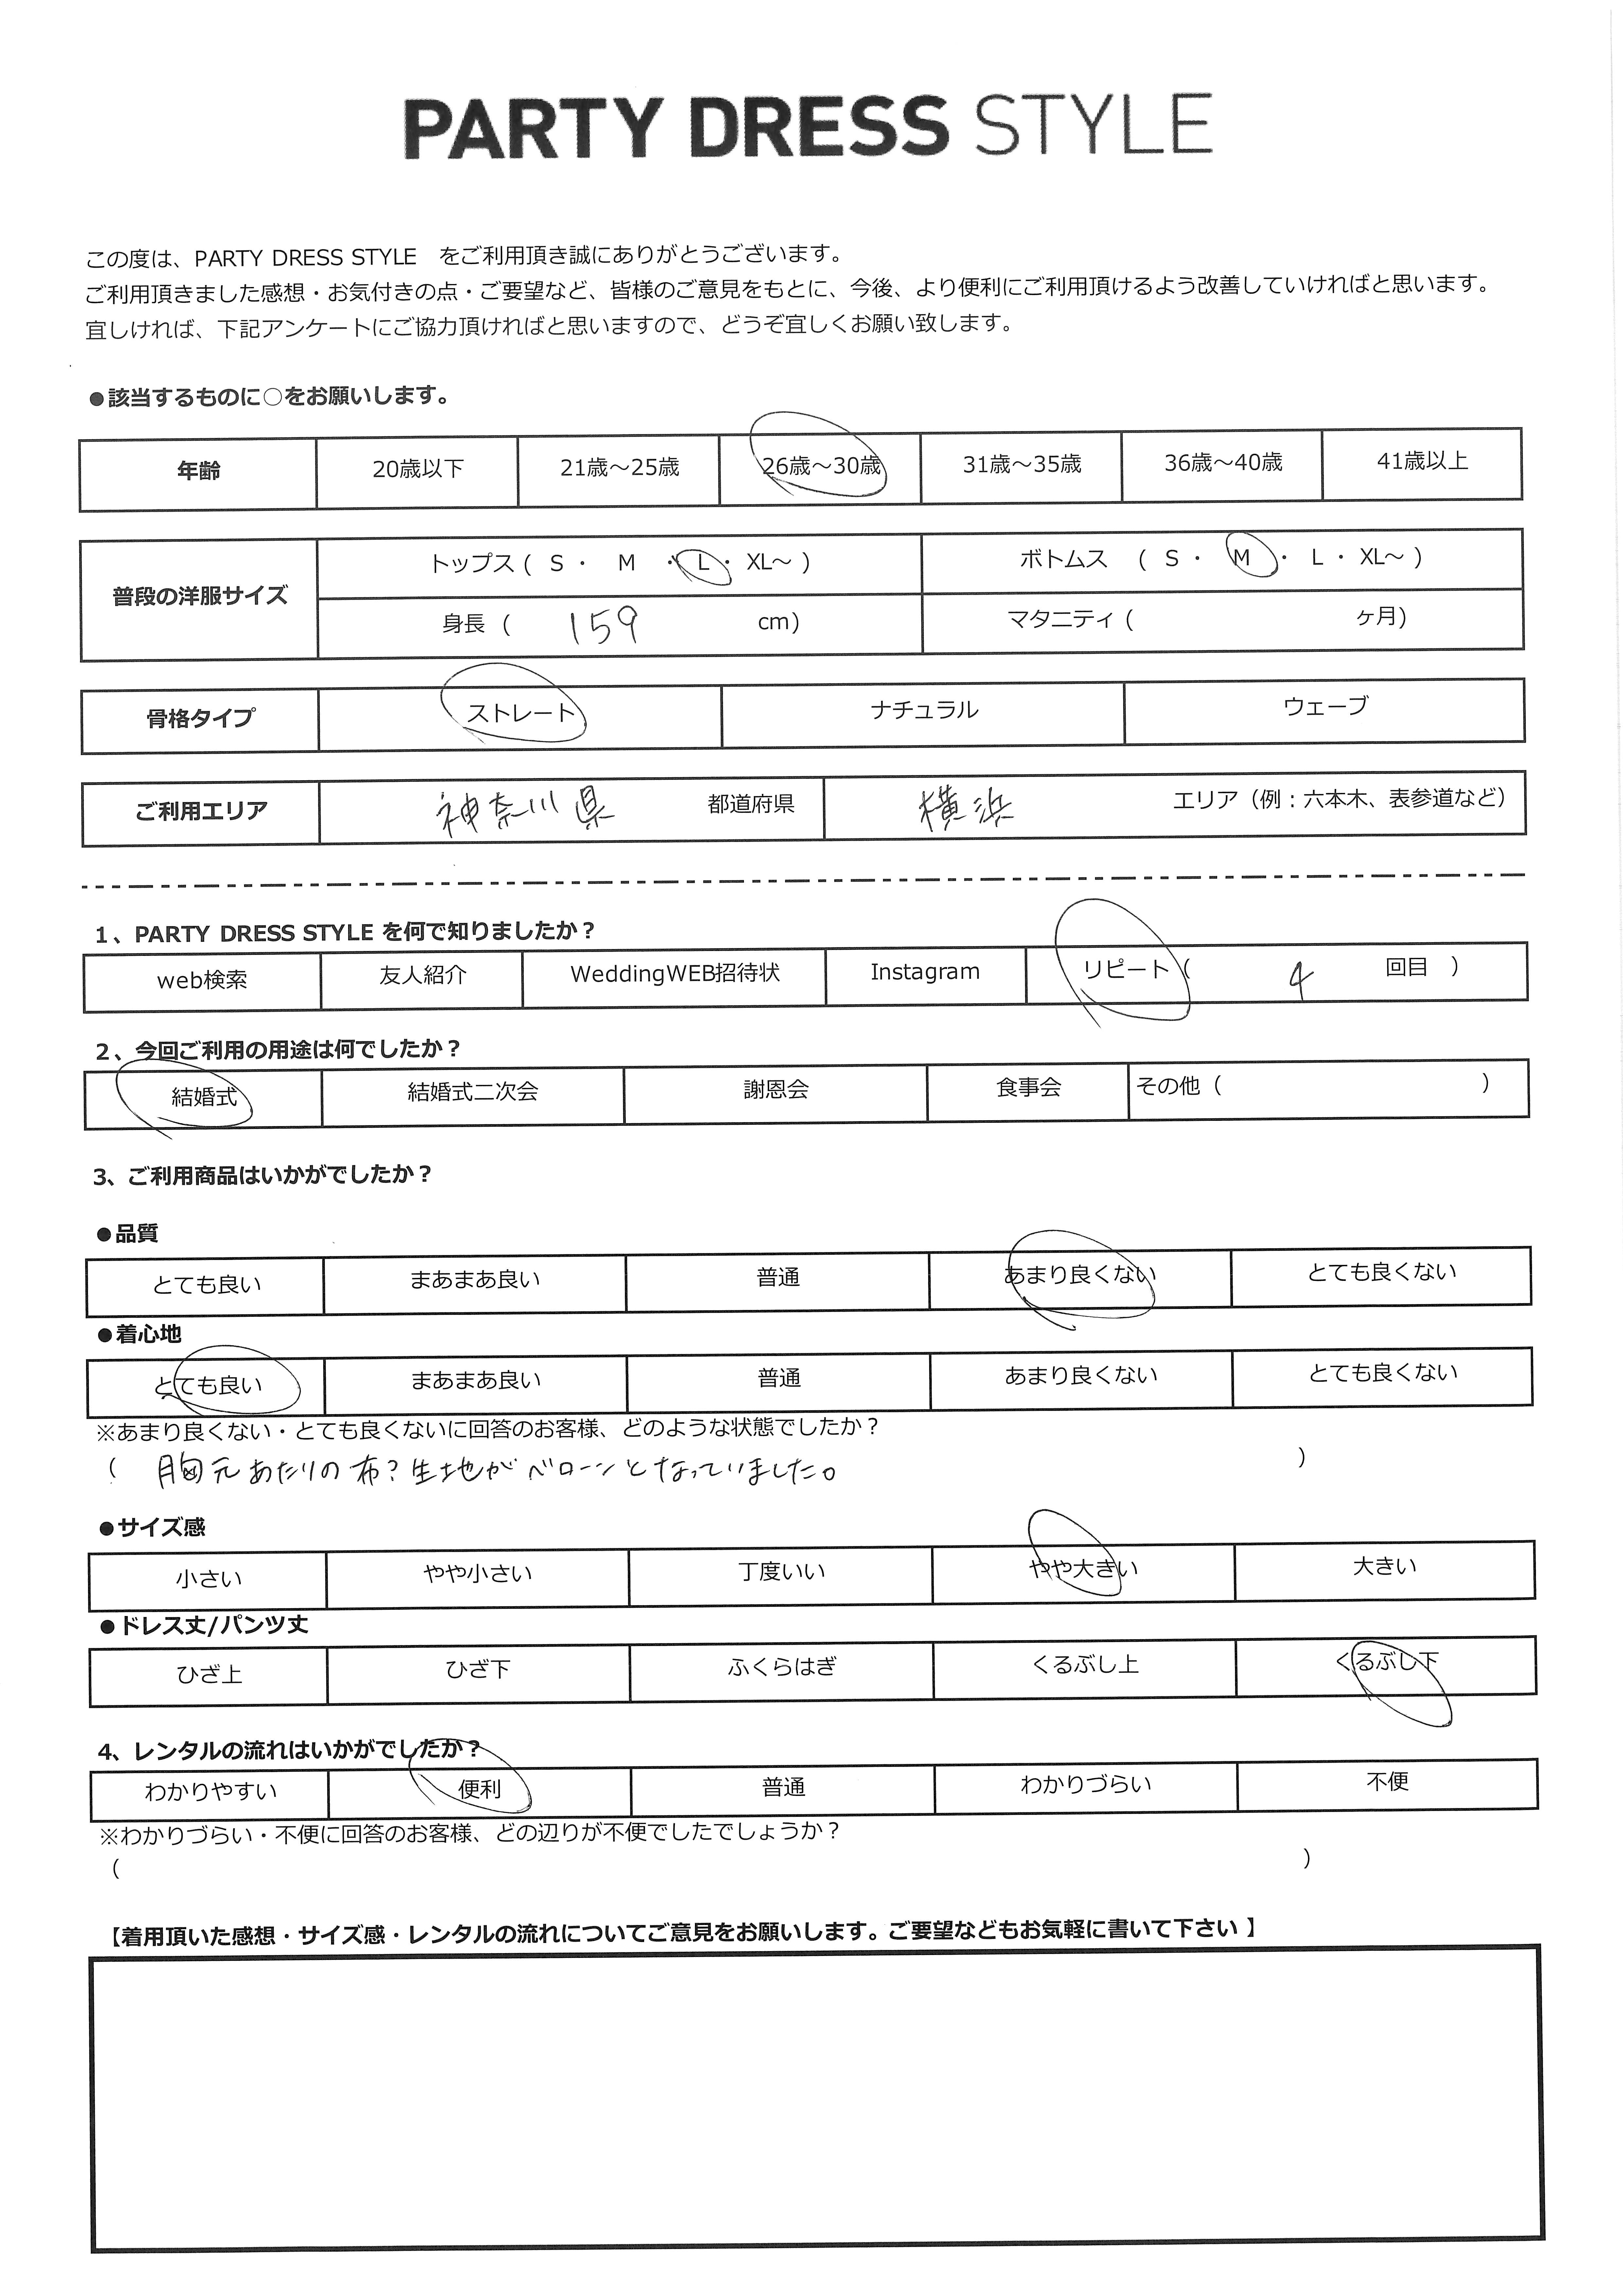 PARTY DRESS STYLE
この度は、PARTY DRESS STYLE　をご利用頂き誠にありがとうございます。
ご利用頂きました感想・お気付きの点・ご要望など、皆様のご意見をもとに、今後、より便利にご利用頂けるよう改善していければと思います。
宜しければ、下記アンケートにご協力頂ければと思いますので、どうぞ宜しくお願い致します。
●該当するものに○をお願いします。
年齢 20歳以下 21歳～25歳 26歳～30歳 31歳～35歳 36歳～40歳 41歳以上
普段の洋服サイズ
トップス ( S ・ M ・ L ・ XL～ ) ボトムス ( S ・ M ・ L ・ XL～ )
身長 ( 159 cm) マタニティ ( ヶ月)
骨格タイプ ストレート ナチュラル ウェーブ
ご利用エリア 神奈川県 都道府県 横浜 エリア（例：六本木、表参道など）
1、PARTY DRESS STYLE を何で知りましたか？
web検索 友人紹介 WeddingWEB招待状 Instagram リピート ( 4 回目 )
2、今回ご利用の用途は何でしたか？
結婚式 結婚式二次会 謝恩会 食事会 その他 ( )
3、ご利用商品はいかがでしたか？
●品質
とても良い まあまあ良い 普通 あまり良くない とても良くない
●着心地
とても良い まあまあ良い 普通 あまり良くない とても良くない
※あまり良くない・とても良くないに回答のお客様、どのような状態でしたか？
( 胸元あたりの布？生地がベローンとなっていました。 )
●サイズ感
小さい やや小さい 丁度いい やや大きい 大きい
●ドレス丈/パンツ丈
ひざ上 ひざ下 ふくらはぎ くるぶし上 くるぶし下
4、レンタルの流れはいかがでしたか？
わかりやすい 便利 普通 わかりづらい 不便
※わかりづらい・不便に回答のお客様、どの辺りが不便でしたでしょうか？
( )
【着用頂いた感想・サイズ感・レンタルの流れについてご意見をお願いします。ご要望などもお気軽に書いて下さい 】